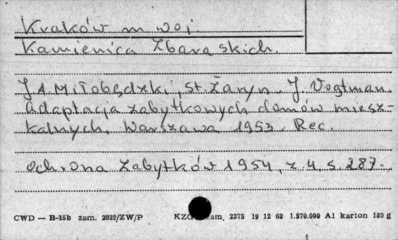 Kraków m woj.
Kamienica Zbaraskich.
J. A. Miłobędzki, St. Żaryn, J. Vogtman.
Adaptacja zabytkowych domów miesz-
kalnych, Warszawa 1953. Rec.
Ochrona Zabytków 1954, z. 4, s. 287.
CWD — B-15b zam. 2833/ZW/P KZG zam. 2375 19 12 62 1.570.000 A1 karton 180 g